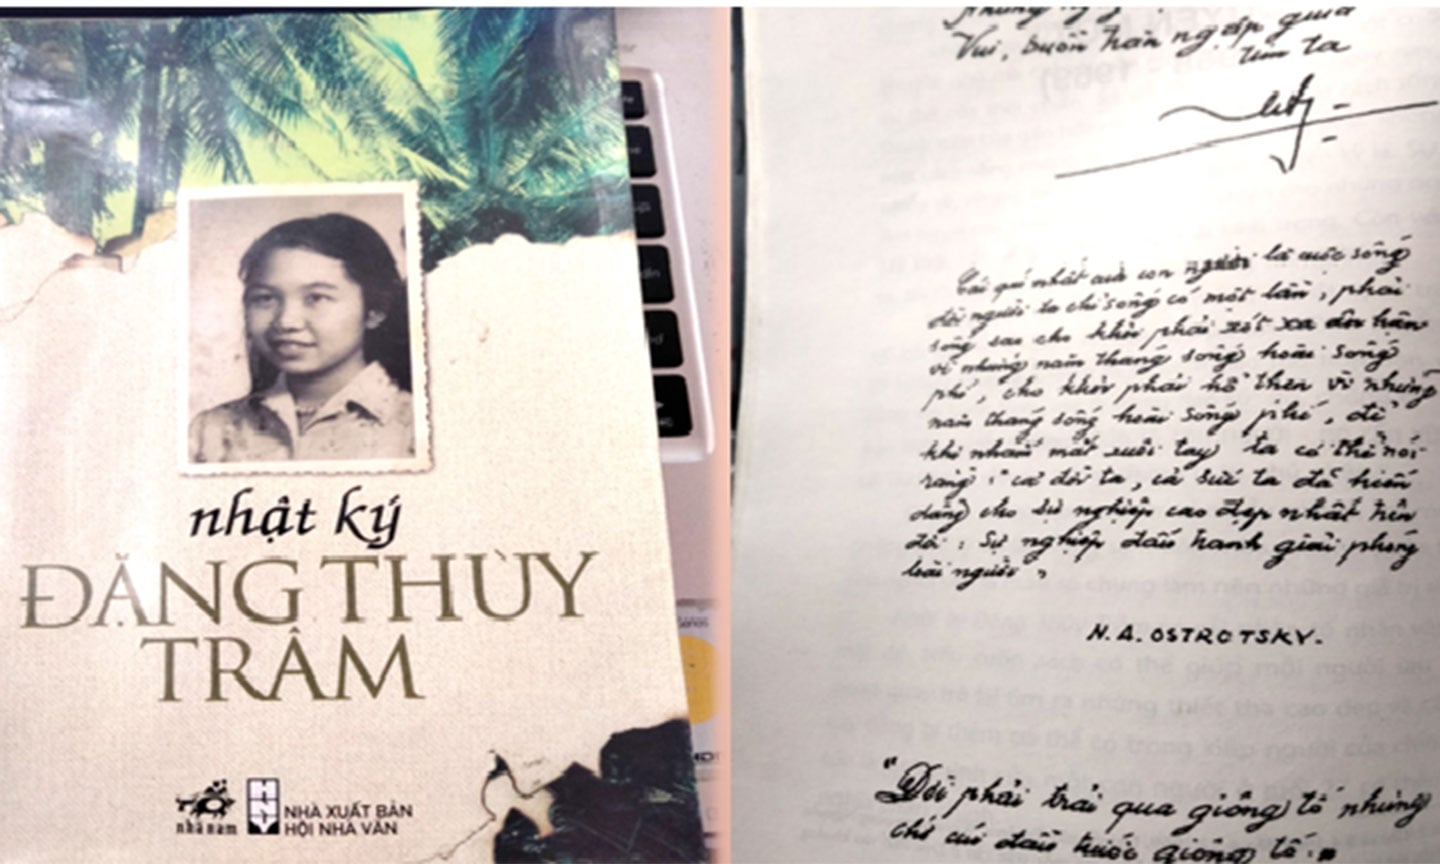 nhật ký
ĐẶNG THÙY
TRÂM
nhã nam
HNV
NHÀ XUẤT BẢN
HỘI NHÀ VĂN
Vui, buồn tràn ngập giữa
tim ta
Cái quí nhất của con người là cuộc sống
đời người ta chỉ sống có một lần, phải
sống sao cho khỏi phải xót xa ân hận
vì những năm tháng sống hoài sống
phí, cho khỏi phải hổ thẹn vì những
năm tháng sống hoài sống phí, để
khi nhắm mắt xuôi tay ta có thể nói
rằng: cả đời ta, cả sức ta đã hiến
dâng cho sự nghiệp cao đẹp nhất trên
đời: sự nghiệp đấu tranh giải phóng
loài người
N. A. OSTROTSKY.
"Đời phải trải qua giông tố nhưng
chớ cúi đầu trước giông tố."